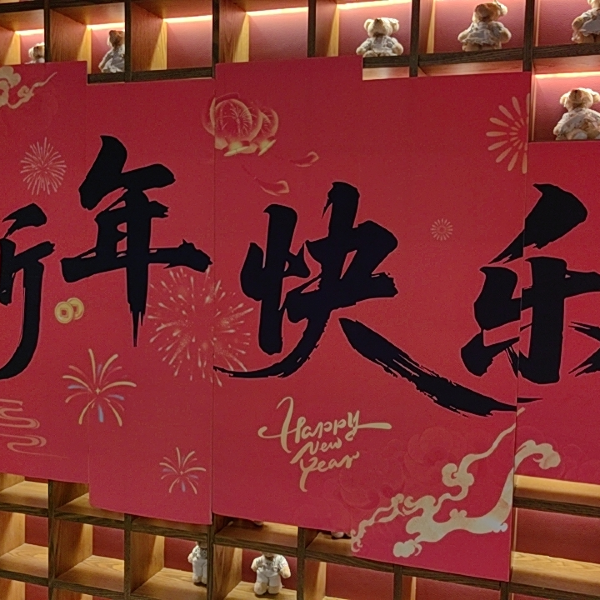 新年快乐
Happy
New
Year